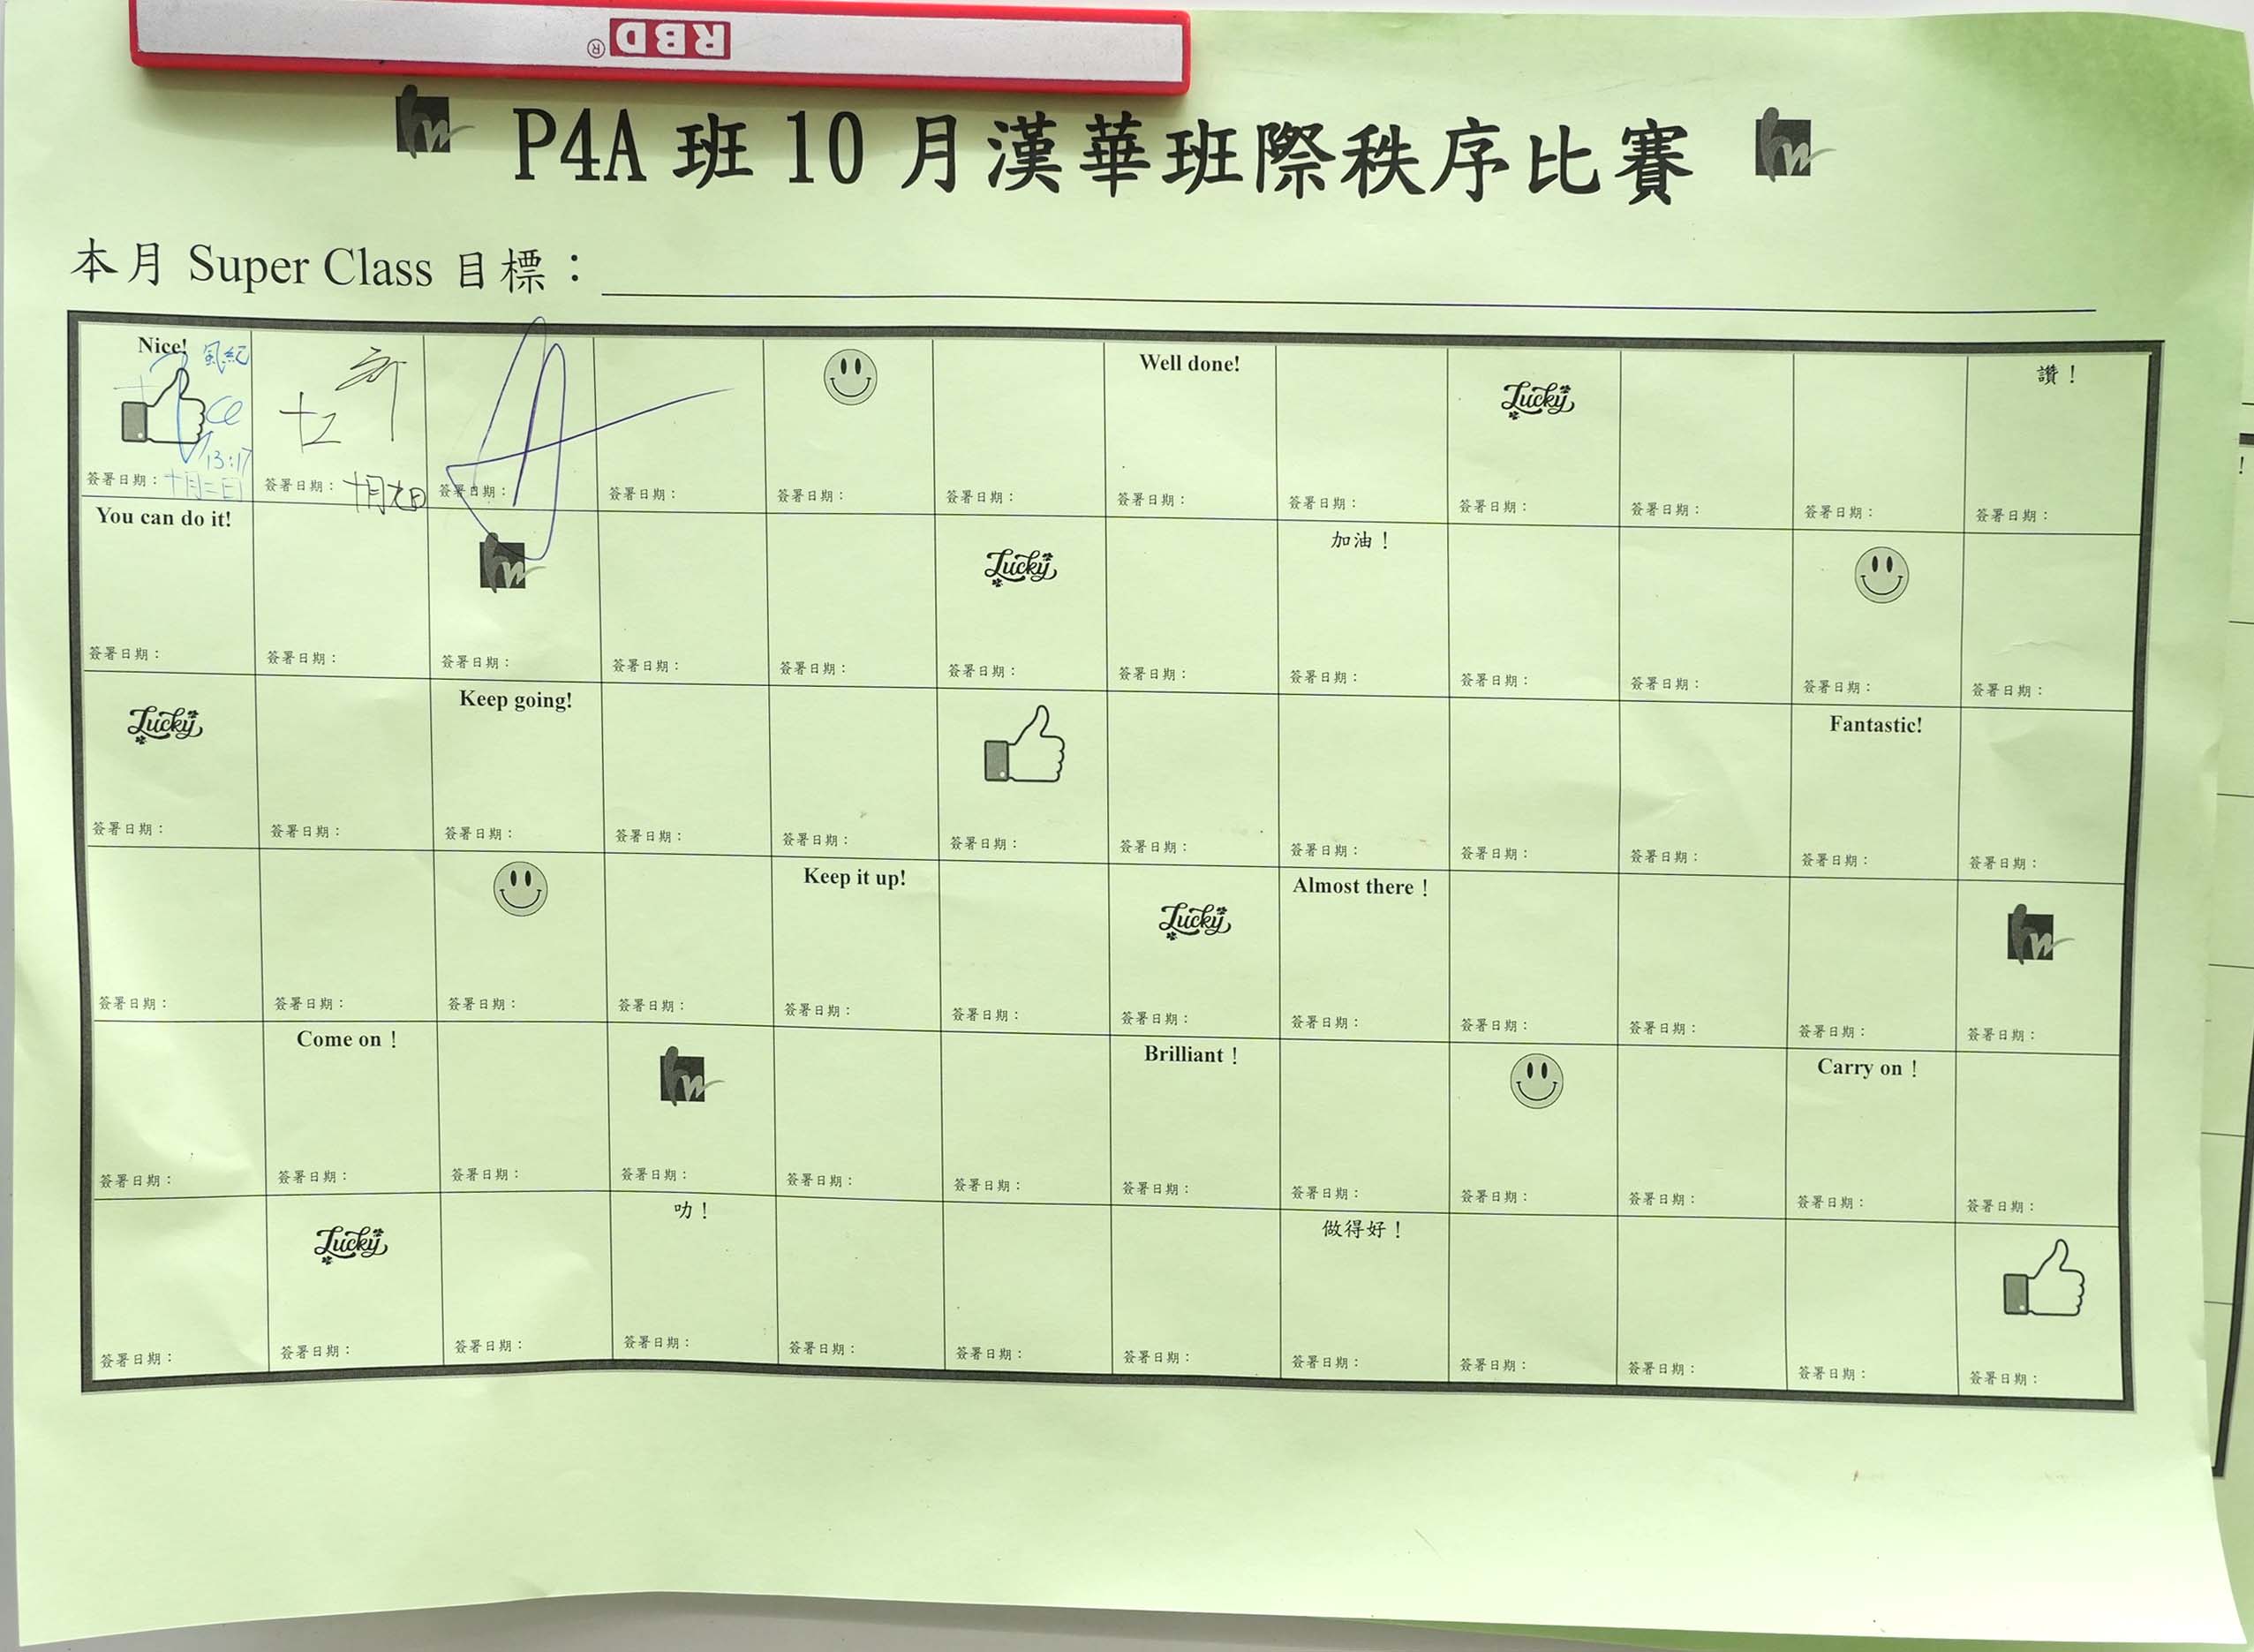 RBD®
P4A 班 10 月漢華班際秩序比賽
本月 Super Class 目標：
Nice! 風紀
Well done!
Lucky
讚！
13:17
簽署日期：十月二日 簽署日期：十月九日 簽署日期： 簽署日期： 簽署日期： 簽署日期： 簽署日期： 簽署日期： 簽署日期： 簽署日期： 簽署日期： 簽署日期：
You can do it! hw Lucky 加油！
簽署日期： 簽署日期： 簽署日期： 簽署日期： 簽署日期： 簽署日期： 簽署日期： 簽署日期： 簽署日期： 簽署日期： 簽署日期： 簽署日期：
Lucky Keep going! Fantastic!
簽署日期： 簽署日期： 簽署日期： 簽署日期： 簽署日期： 簽署日期： 簽署日期： 簽署日期： 簽署日期： 簽署日期： 簽署日期： 簽署日期：
Keep it up! Lucky Almost there！ hw
簽署日期： 簽署日期： 簽署日期： 簽署日期： 簽署日期： 簽署日期： 簽署日期： 簽署日期： 簽署日期： 簽署日期： 簽署日期： 簽署日期：
Come on！ hw Brilliant！ Carry on！
簽署日期： 簽署日期： 簽署日期： 簽署日期： 簽署日期： 簽署日期： 簽署日期： 簽署日期： 簽署日期： 簽署日期： 簽署日期： 簽署日期：
Lucky 叻！ 做得好！
簽署日期： 簽署日期： 簽署日期： 簽署日期： 簽署日期： 簽署日期： 簽署日期： 簽署日期： 簽署日期： 簽署日期： 簽署日期： 簽署日期：